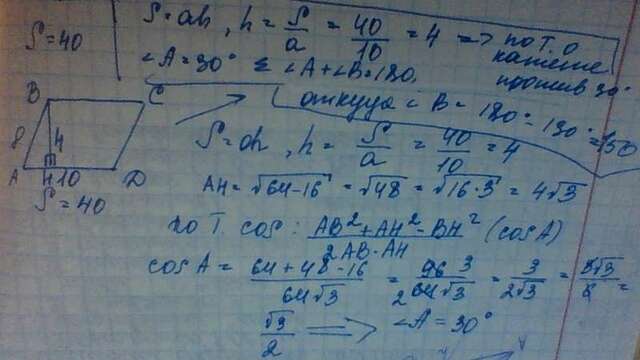 S=40
S=ah, h = S/a = 40/10 = 4 => по Т. о
катете
против 30°
∠A=30° ∠A+∠B=180,
откуда ∠B = 180°-30°=150
B C
8 4
A H 10 D
S=40
S=ah, h = S/a = 40/10 = 4
AH = √64-16 = √48 = √16·3 = 4√3
по Т. cos: AB²+AH²-BH²/2AB·AH (cosA)
cosA = 64+48-16/64√3 = 96 3/2 64√3 = 3/2√3 = 3√3/6 =
√3/2 => ∠A=30°